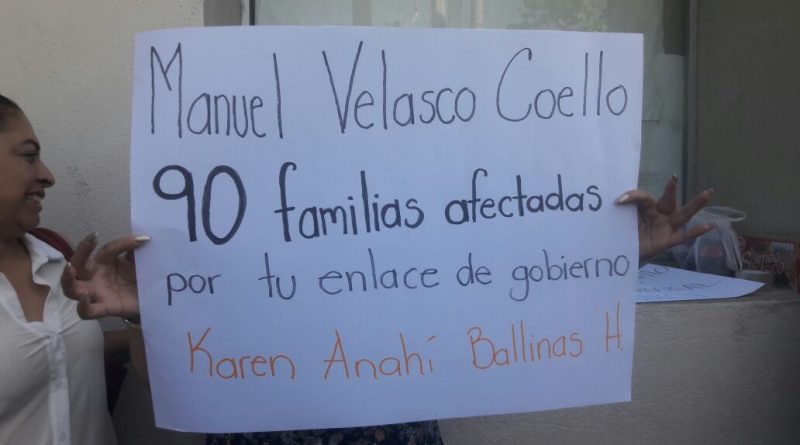 Manuel Velasco Coello
90 familias afectadas
por tu enlace de gobierno
Karen Anahí Ballinas H.